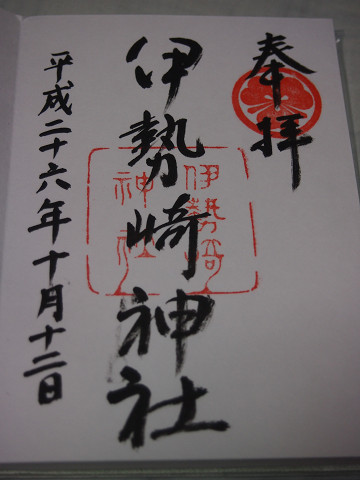 奉拝
伊勢崎神社
伊勢崎
神社
平成二十六年十月十二日